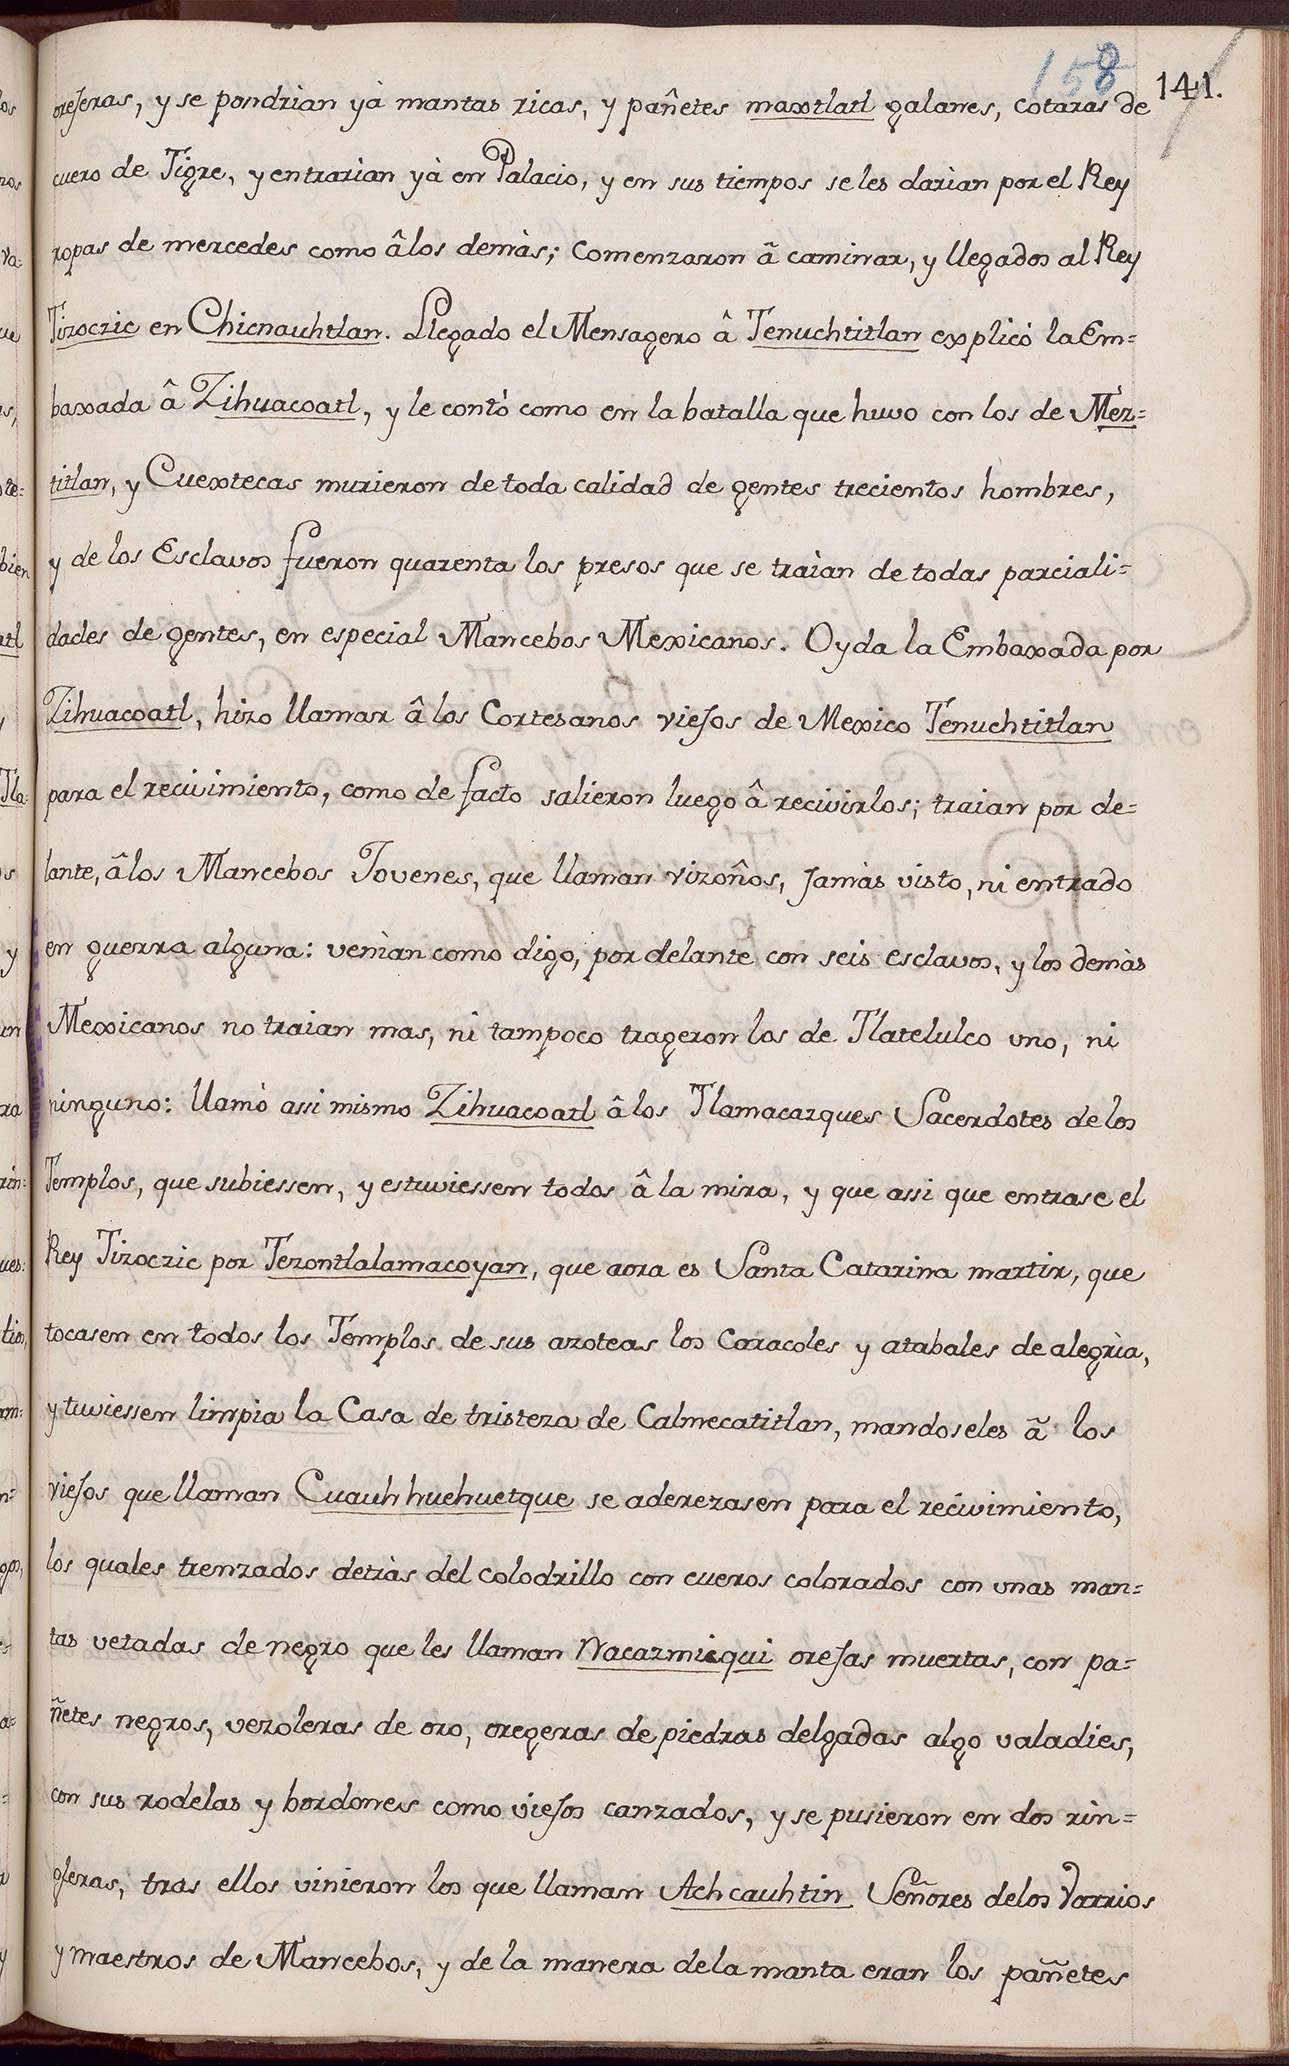 158 141.
orejeras, y se pondrian yà mantas ricas, y pañetes maxtlatl galanes, cotaras de
cuero de Tigre, y entrarian yà en Palacio, y en sus tiempos se les darian por el Rey
ropas de mercedes como âlos demàs; comenzaron â caminar, y llegados al Rey
Tizoczic en Chicnauhtlan. Llegado el Mensagero â Tenuchtitlan explicó la Em=
baxada â Zihuacoatl, y le contò como en la batalla que huvo con los de Mez=
titlan, y Cuextecas murieron de toda calidad de gentes trecientos hombres,
y de los Esclavos fueron quarenta los presos que se traìan de todas parciali=
dades de gentes, en especial Mancebos Mexicanos. Oyda la Embaxada por
Zihuacoatl, hizo llamar â los Cortesanos viejos de Mexico Tenuchtitlan
para el recivimiento, como de facto salieron luego â recivirlos; traian por de=
lante, âlos Mancebos Jovenes, que llaman vizoños, jamàs visto, ni entrado
en guerra alguna: venìan como digo, por delante con seis esclavos, y los demàs
Mexicanos no traian mas, ni tampoco trageron los de Tlatelulco uno, ni
ninguno: llamò assi mismo Zihuacoatl â los Tlamacazques Sacerdotes de los
Templos, que subiessen, y estuviessen todos â la mira, y que assi que entrase el
Rey Tizoczic por Tezontlalamacoyan, que aora es Santa Catarina martir, que
tocasen en todos los Templos de sus azoteas los Caracoles y atabales de alegrìa,
y tuviessen limpia la Casa de tristeza de Calmecatitlan, mandoseles â los
viejos que llaman Cuauhhuehuetque se aderezasen para el recivimiento,
los quales trenzados detràs del colodrillo con cueros colorados con unas man=
tas vetadas de negro que les llaman Nacazmicqui orejas muertas, con pa=
ñetes negros, vezoleras de oro, oregeras de piedras delgadas algo valadies,
con sus rodelas y bordones como viejos canzados, y se pusieron en dos rin=
gleras, tras ellos vinieron los que llaman Achcauhtin Señores delos Varrios
y maestros de Mancebos, y de la manera dela manta eran los pañetes